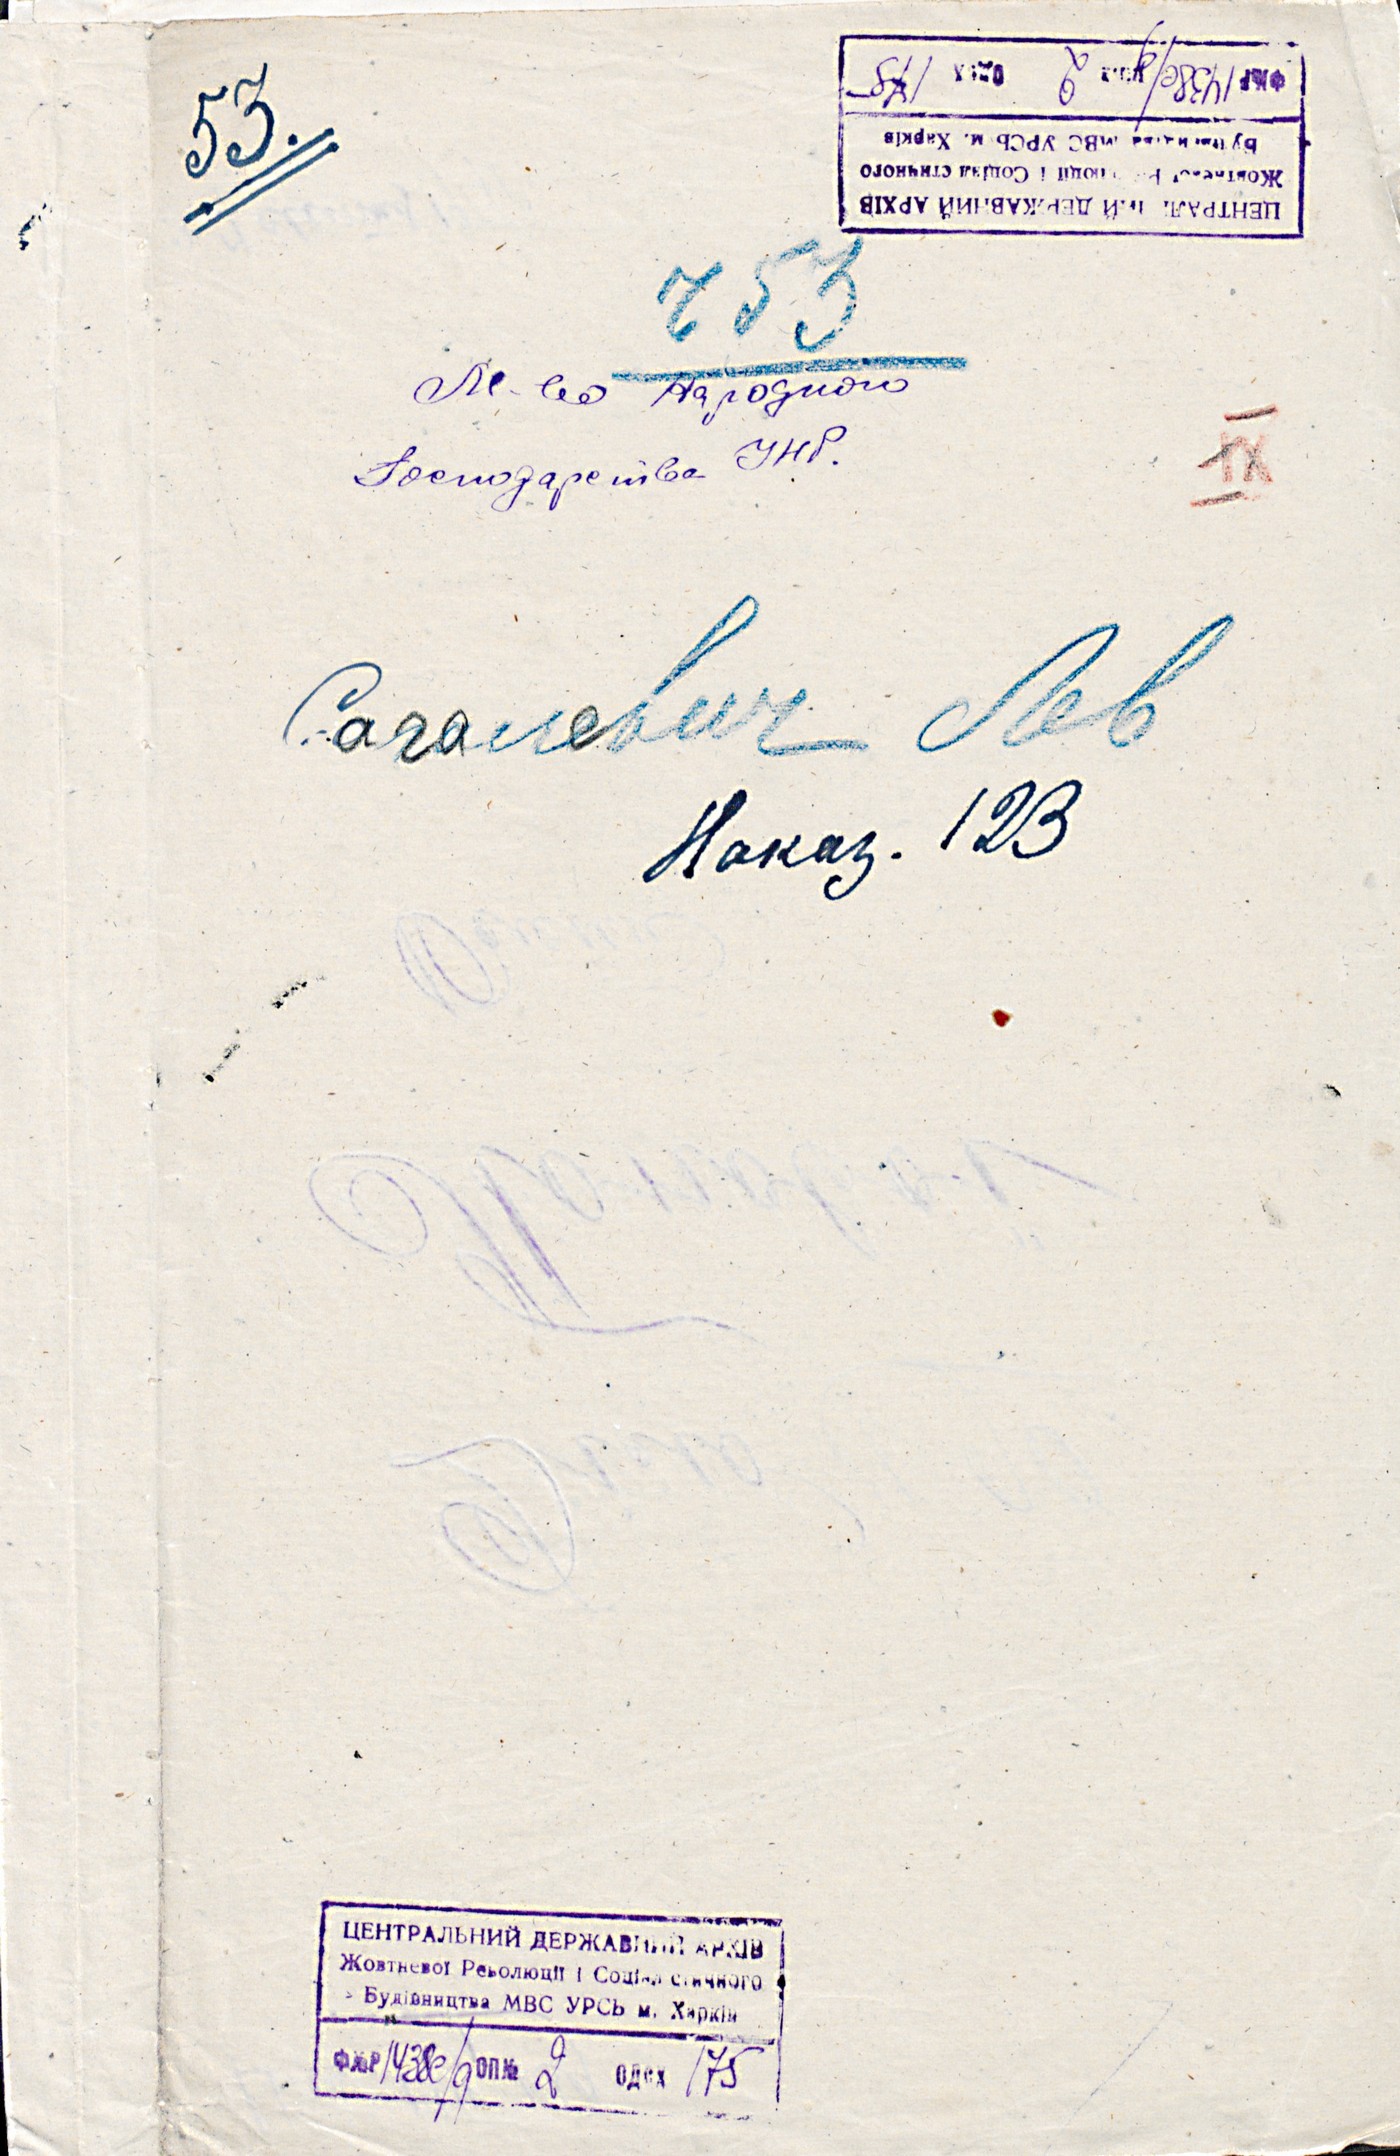 53.
ЦЕНТРАЛЬНИЙ ДЕРЖАВНИЙ АРХІВ
Жовтневої Революції і Соціалістичного
Будівництва МВС УРСР м. Харків
ФАР 1438с/9 ОПИС 2 ОДЗХ 175
ч 53
М-во Народного
Господарства УНР.
IX
Сагалевич Лев
Наказ. 123
ЦЕНТРАЛЬНИЙ ДЕРЖАВНИЙ АРХІВ
Жовтневої Революції і Соціалістичного
Будівництва МВС УРСР м. Харків
2
175